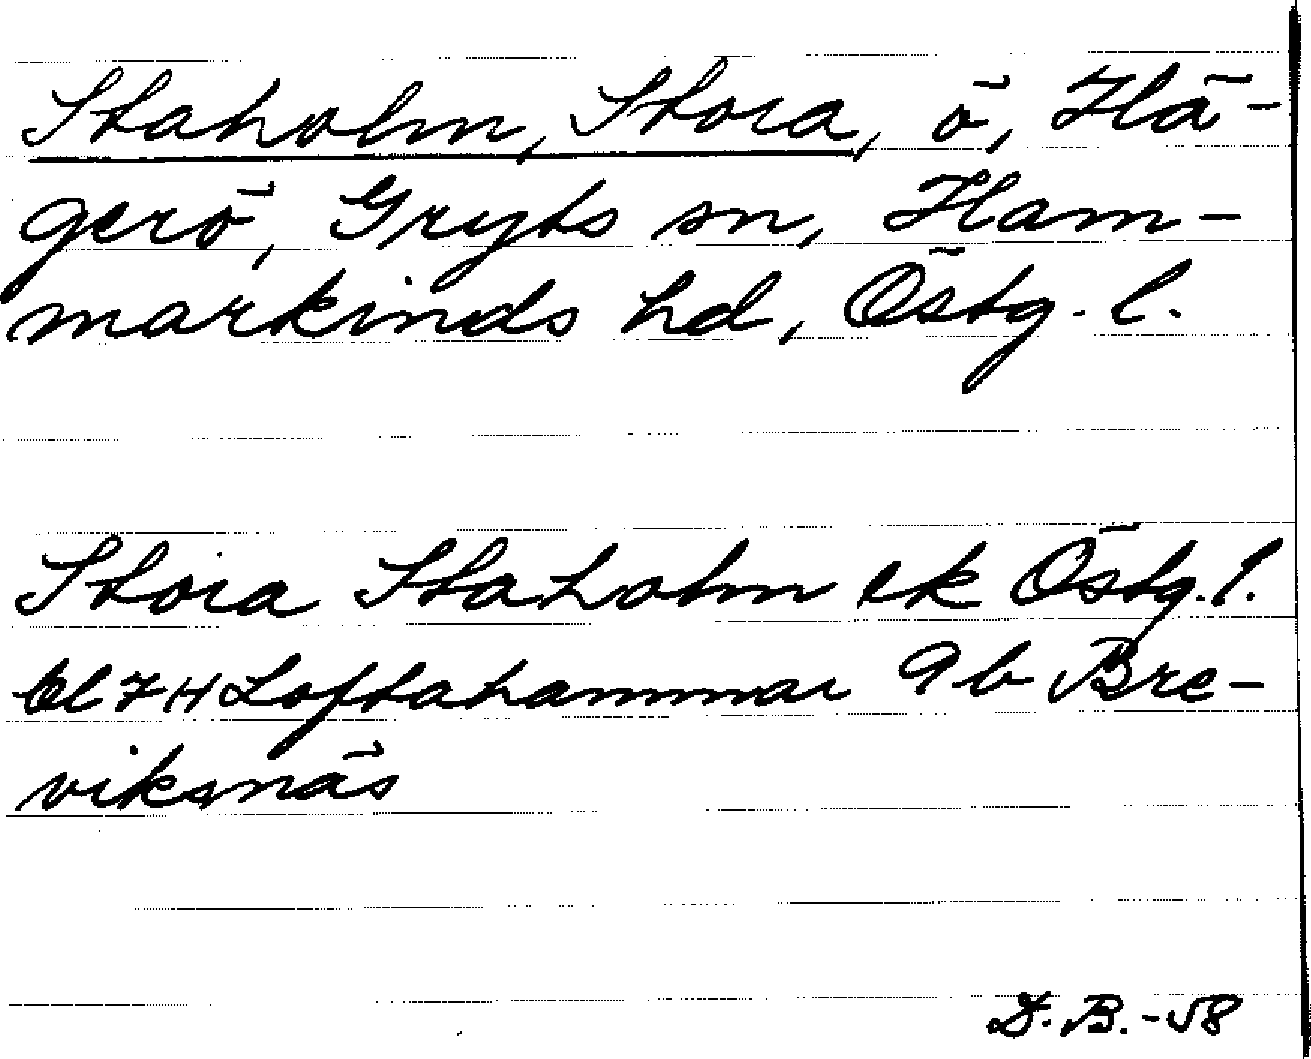 Staholm, Stora, ö, Hä-
gerö, Gryts sn, Ham-
markinds hd, Östg. l.
Stora Staholm ek Östg. l.
bl 7H Loftahammar 9b Bre-
viksnäs
D. B. -58